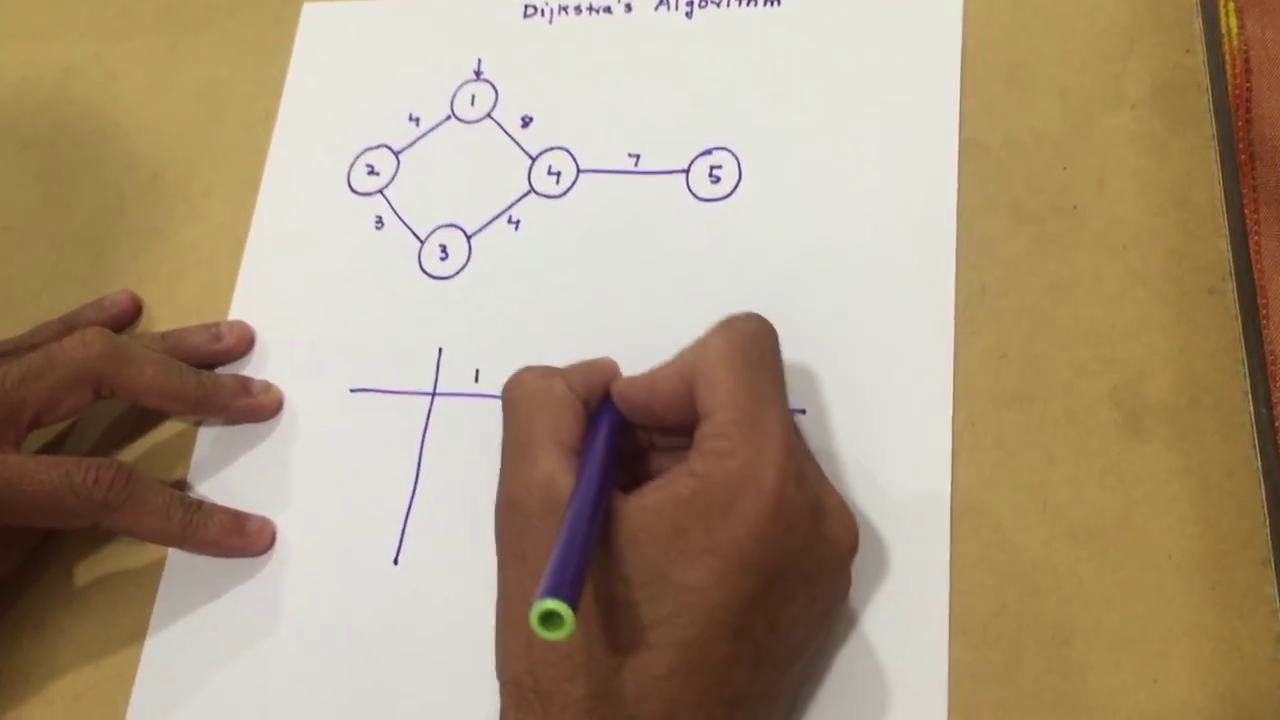 Dijkstra's Algorithm
1
4 8
2 4 7 5
3 4
3
1